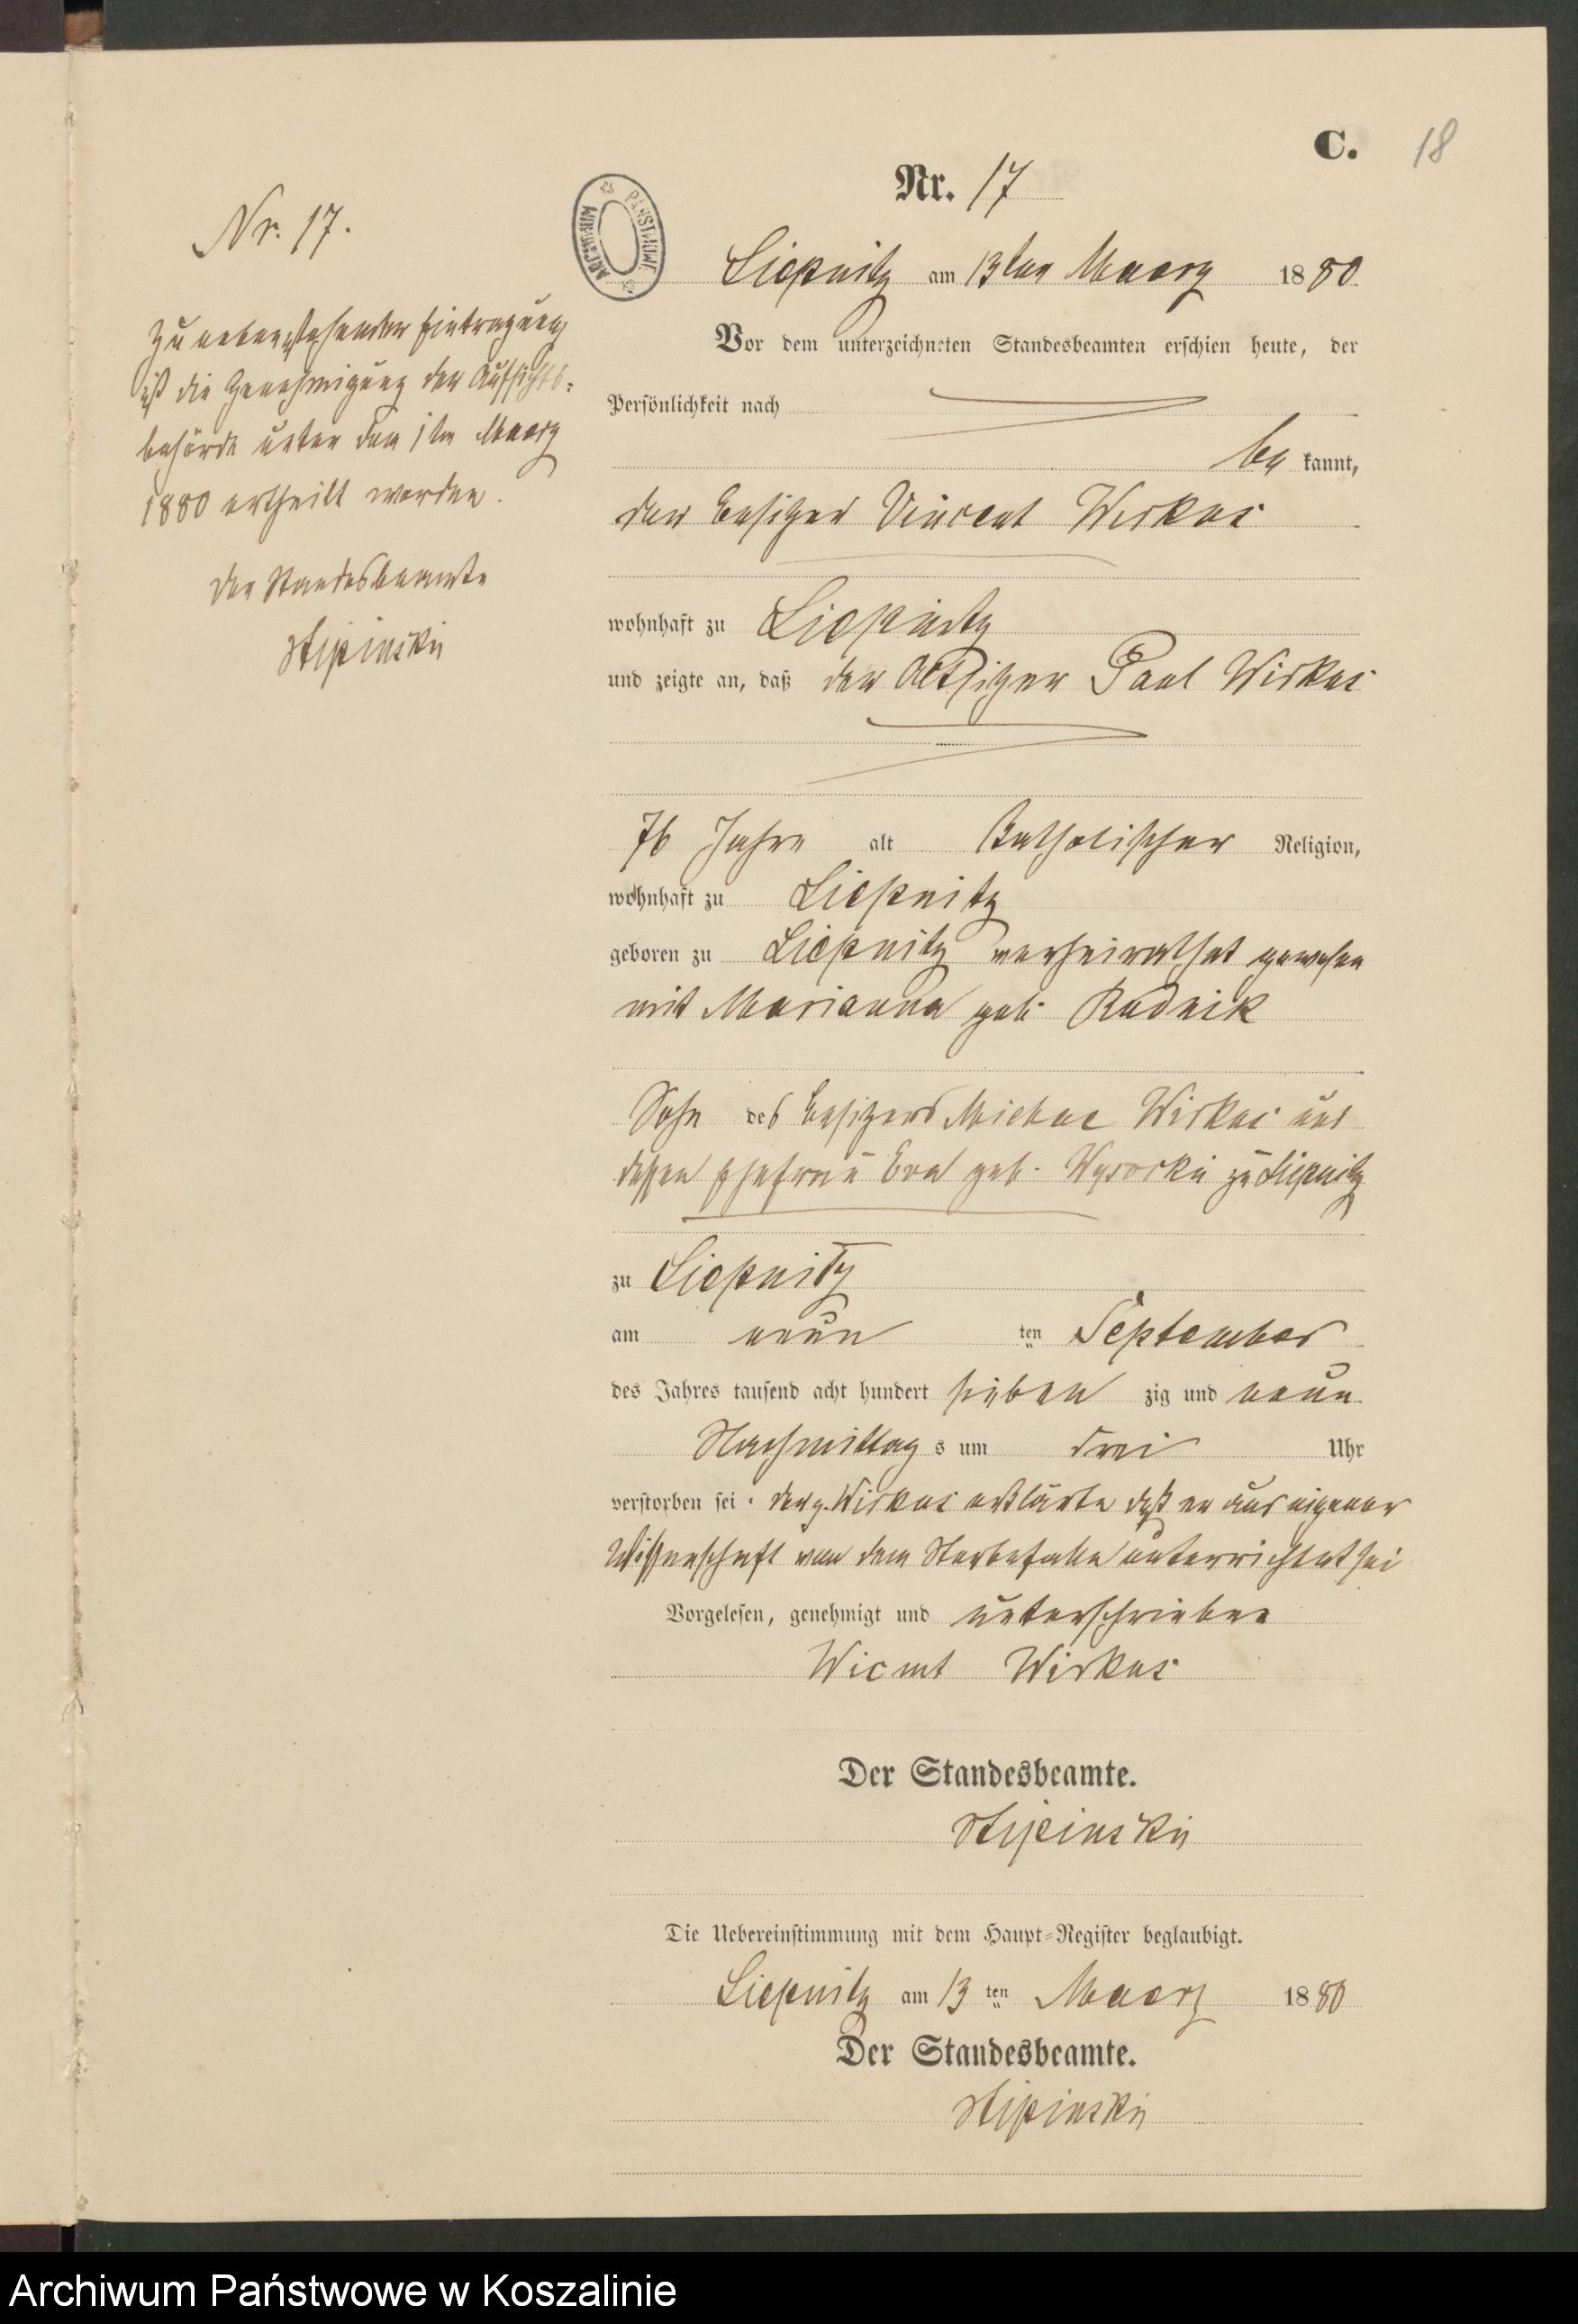 C. 18
Nr. 17
Nr. 17.
Zu nebenstehender Eintragung
ist die Genehmigung der Aufsichts-
behörde unter dem 1ten Maerz
1880 ertheilt worden.
Der Standesbeamte
Liepnitz am 13ten Maerz 1880.
Vor dem unterzeichneten Standesbeamten erschien heute, der
Persönlichkeit nach
be kannt,
der Besitzer Vincent Wirkus
wohnhaft zu Liepnitz
und zeigte an, daß der Altsitzer Paul Wirkus
76 Jahre alt Katholischer Religion,
wohnhaft zu Liepnitz
geboren zu Liepnitz verheirathet gewesen
mit Marianna geb. Rudnik
Sohn des Besitzers Wirkus und
dessen Ehefrau Eva geb. Wysocki zu Liepnitz
zu Liepnitz
am neun ten September
des Jahres tausend acht hundert sieben zig und neun
Nachmittag s um drei Uhr
verstorben sei. Der p. Wirkus erklärte daß er aus eigener
Wissenschaft von dem Sterbefalle unterrichtet sei
Vorgelesen, genehmigt und unterschrieben
Wirkus
Der Standesbeamte.
Die Uebereinstimmung mit dem Haupt-Register beglaubigt.
Liepnitz am 13 ten Maerz 1880
Der Standesbeamte.
Archiwum Państwowe w Koszalinie